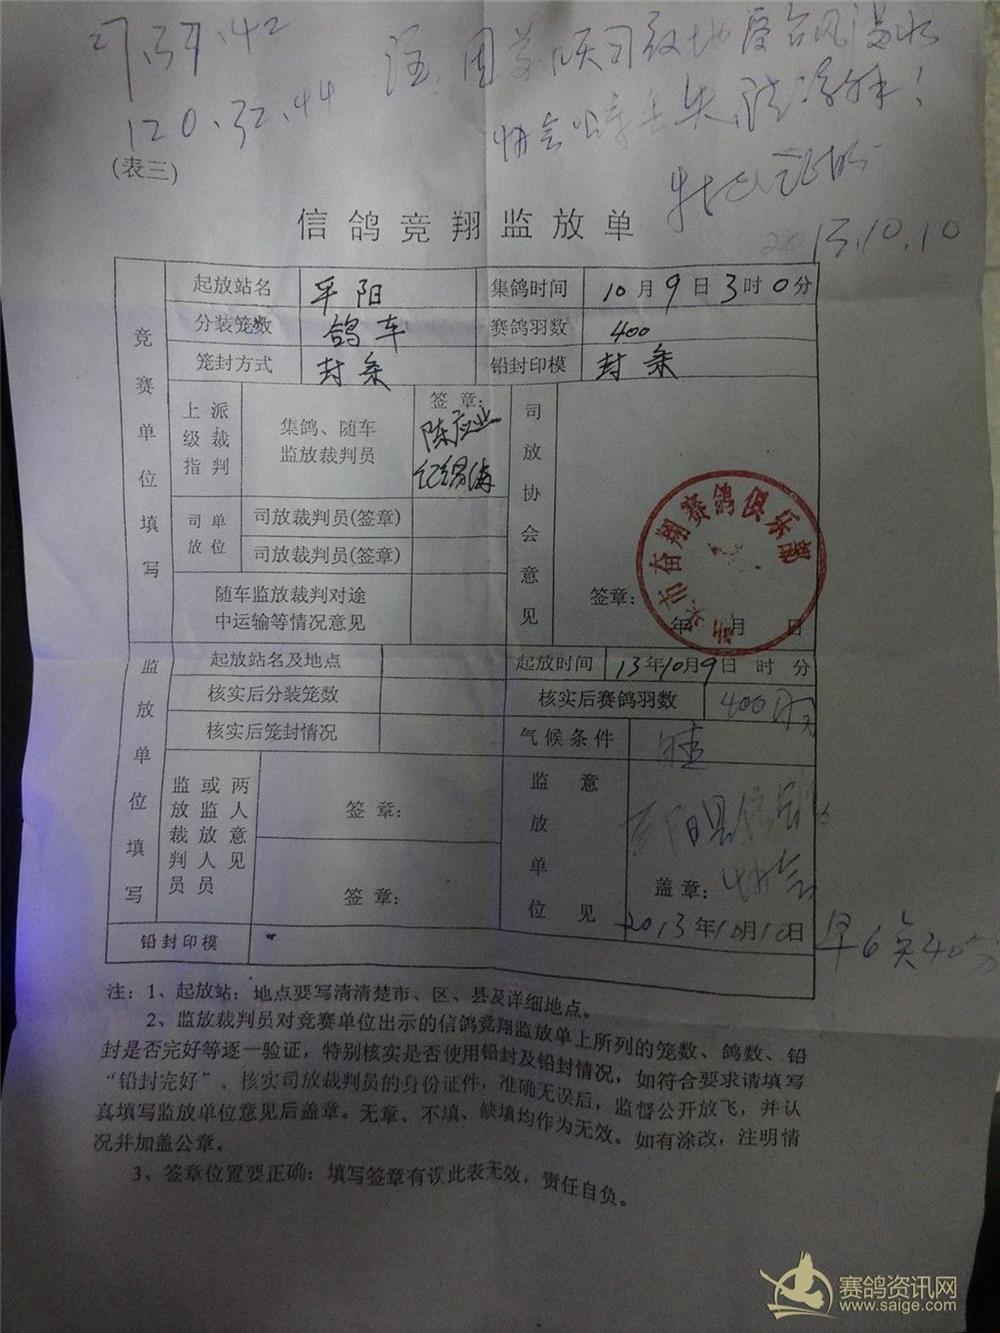 27.39.42
120.32.44
注: 因 司放地受台风
协会 丢失
2013.10.10
(表三)
信鸽竞翔监放单
竞赛单位填写
起放站名 平阳 集鸽时间 10月9日3时0分
分装笼数 鸽车 赛鸽羽数 400
笼封方式 封条 铅封印模 封条
上级指派裁判 集鸽、随车监放裁判员 签章: 陈应业
司放单位 司放裁判员(签章)
司放裁判员(签章)
随车监放裁判对途中运输等情况意见
司放协会意见 签章: 年 月 日
市奋翔赛鸽俱乐部
监放单位填写
起放站名及地点 起放时间 13年10月9日 时 分
核实后分装笼数 核实后赛鸽羽数 400羽
核实后笼封情况 气候条件 晴
监放裁判员或监放人员两人意见 签章:
签章:
监放单位意见 平阳县信鸽协会 盖章:
2013年10月10日 早6点40分
铅封印模
注: 1、起放站: 地点要写清清楚市、区、县及详细地点。
2、监放裁判员对竞赛单位出示的信鸽竞翔监放单上所列的笼数、鸽数、铅
封是否完好等逐一验证, 特别核实是否使用铅封及铅封情况, 如符合要求请填写
“铅封完好”。核实司放裁判员的身份证件, 准确无误后, 监督公开放飞, 并认
真填写监放单位意见后盖章。无章、不填、缺填均作为无效。如有涂改, 注明情
况并加盖公章。
3、签章位置要正确: 填写签章有误此表无效, 责任自负。
赛鸽资讯网
www.saige.com